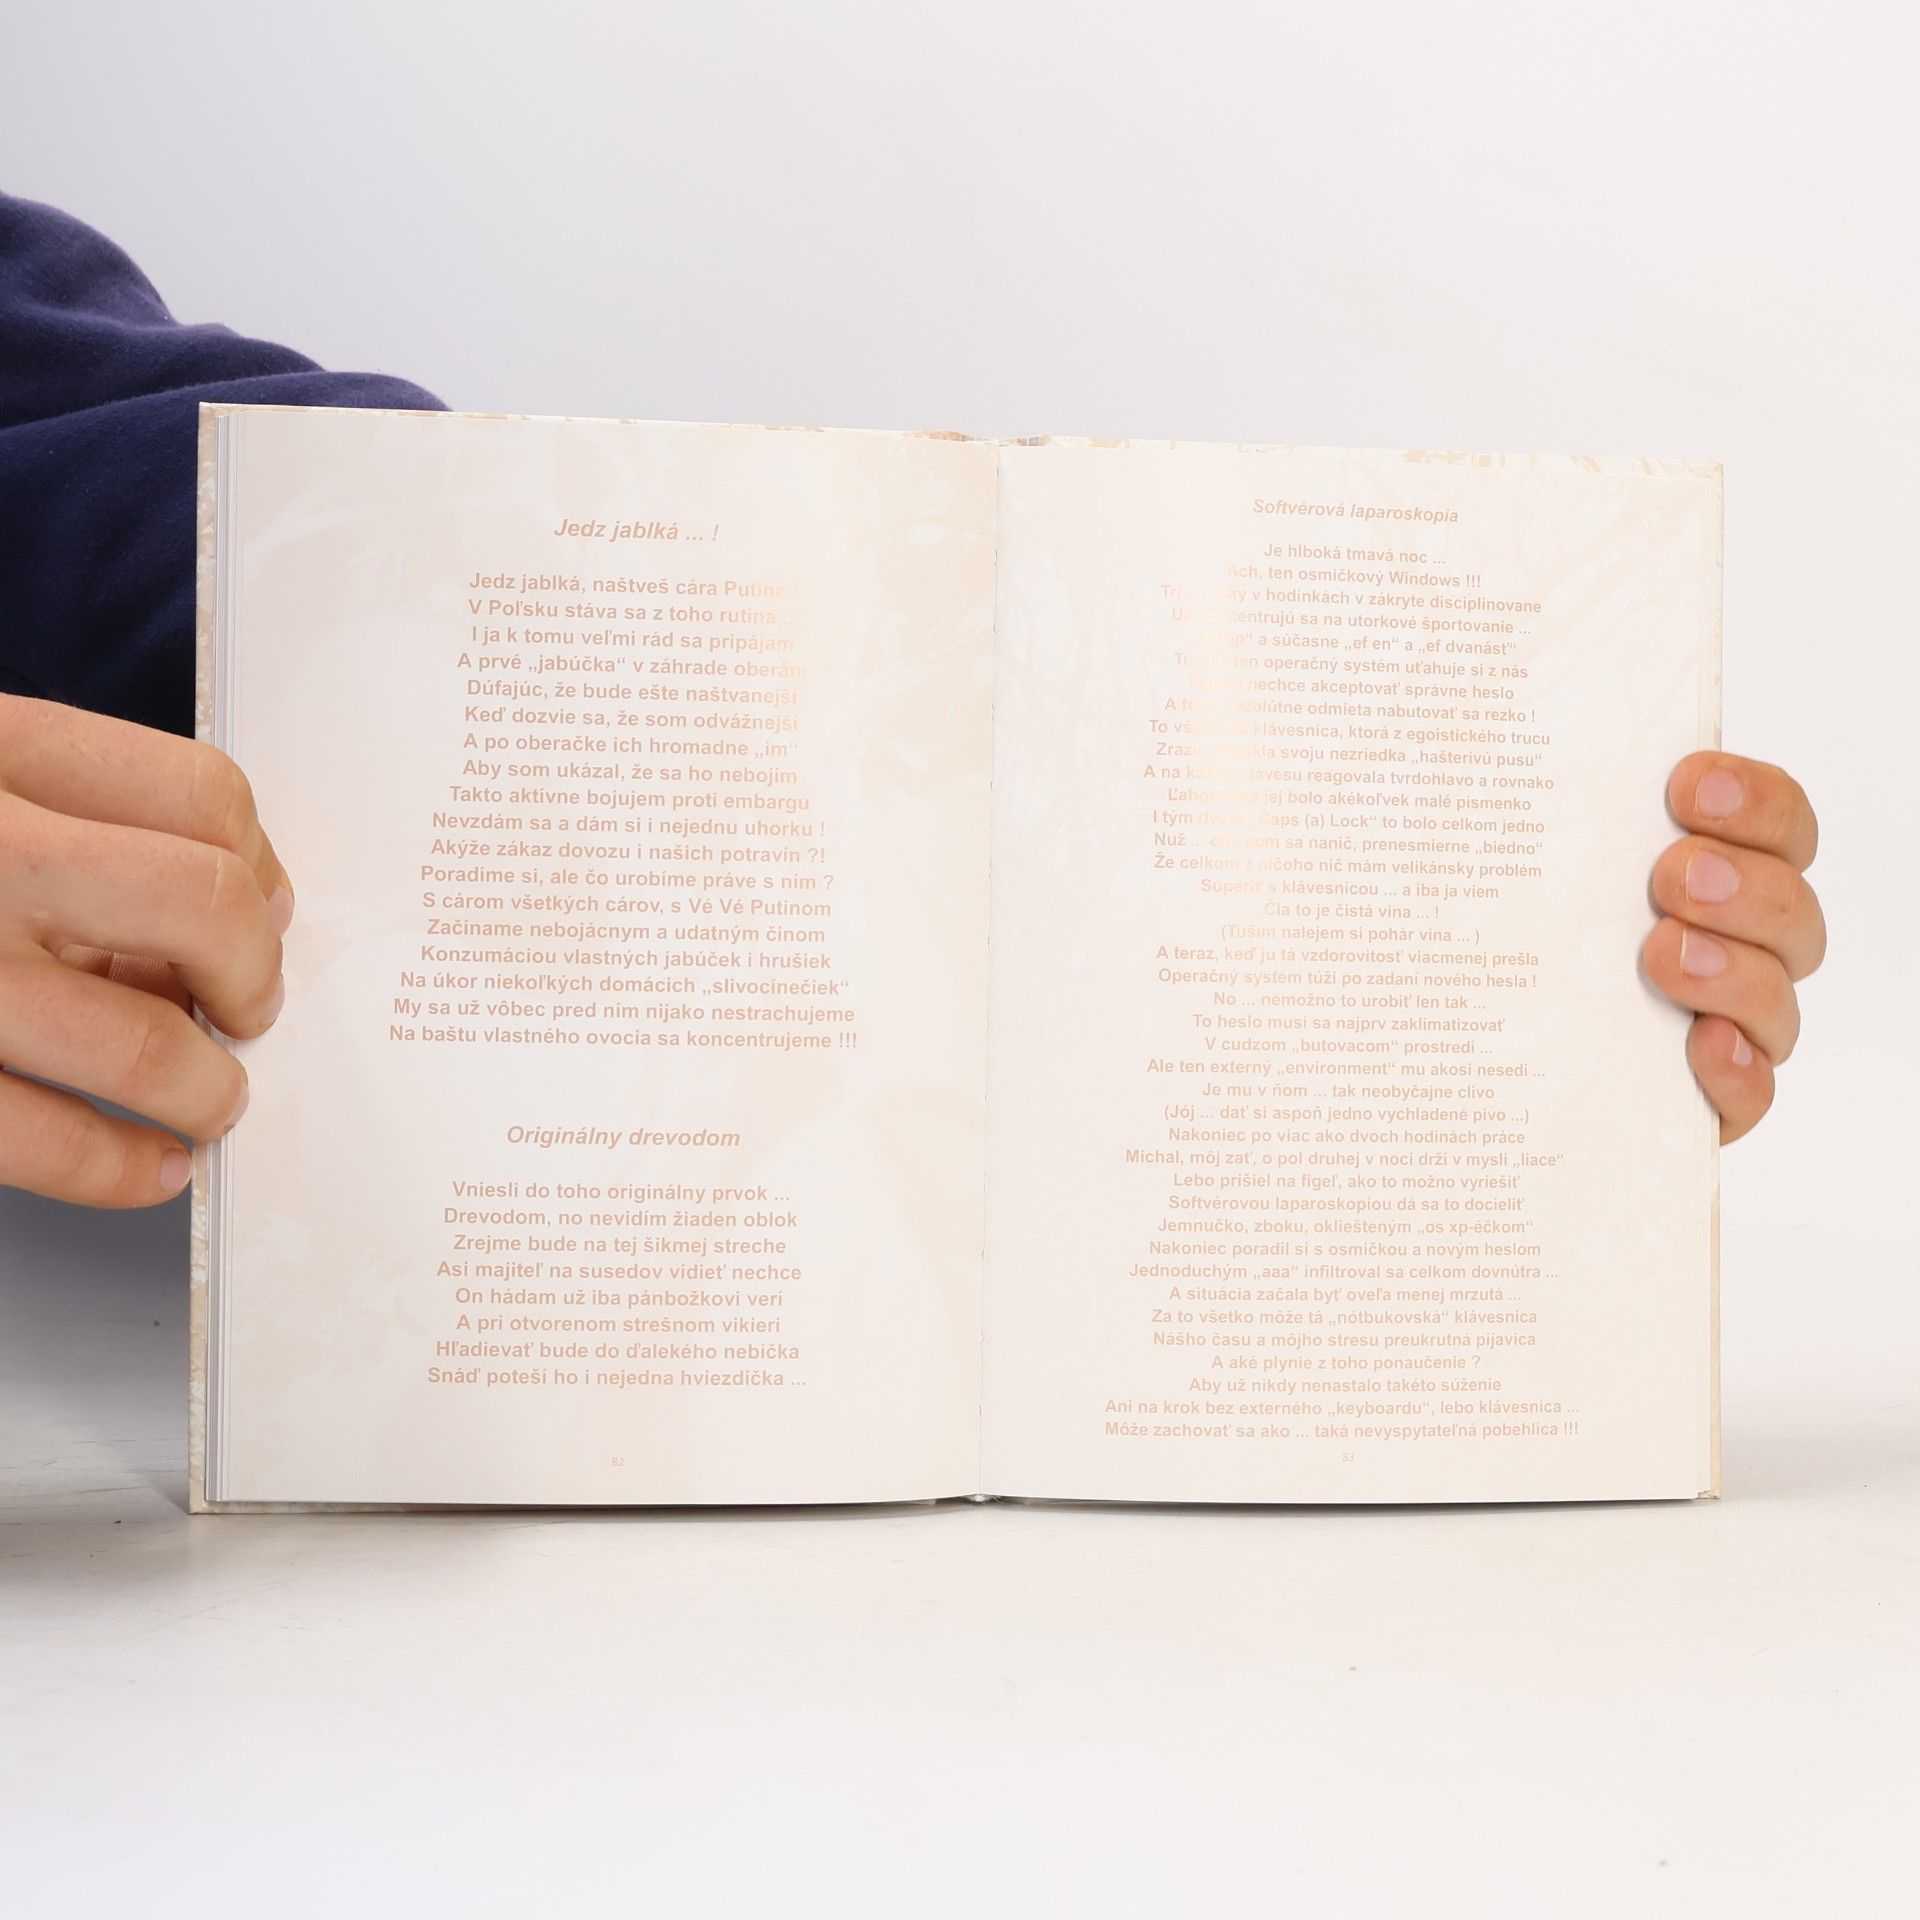 Jedz jablká ... !
Jedz jablká, naštveš cára Putina
V Poľsku stáva sa z toho rutina ...
I ja k tomu veľmi rád sa pripájam
A prvé „jabúčka“ v záhrade oberám
Dúfajúc, že bude ešte naštvanejší
Keď dozvie sa, že som odvážnejší
A po oberačke ich hromadne „ím“
Aby som ukázal, že sa ho nebojím
Takto aktívne bojujem proti embargu
Nevzdám sa a dám si i nejednu uhorku !
Akýže zákaz dovozu i našich potravín ?!
Poradíme si, ale čo urobíme práve s ním ?
S cárom všetkých cárov, s Vé Vé Putinom
Začíname nebojácnym a udatným činom
Konzumáciou vlastných jabúčok i hrušiek
Na úkor niekoľkých domácich „slivocínečiek“
My sa už vôbec pred ním nijako nestrachujeme
Na baštu vlastného ovocia sa koncentrujeme !!!
Originálny drevodom
Vniesli do toho originálny prvok ...
Drevodom, no nevidím žiaden oblok
Zrejme bude na tej šikmej streche
Asi majiteľ na susedov vidieť nechce
On hádam už iba pánbožkovi verí
A pri otvorenom strešnom vikieri
Hľadievať bude do ďalekého nebíčka
Snáď poteší ho i nejedna hviezdička ...
82
Softvérová laparoskopia
Je hlboká tmavá noc ...
Ach, ten osmičkový Windows !!!
v hodinkách v zákryte disciplinovane
sa na utorkové športovanie ...
a súčasne „ef en“ a „ef dvanásť“
ten operačný systém uťahuje si z nás
nechce akceptovať správne heslo
A odmieta nabutovať sa rezko !
To klávesnica, ktorá z egoistického trucu
svoju nezriedka „hašterivú pusu“
A na klávesu reagovala tvrdohlavo a rovnako
jej bolo akékoľvek malé písmenko
I tým „Caps (a) Lock“ to bolo celkom jedno
Nuž ... som sa nanič, prenesmierne „biedno“
Že celkom z ničoho nič mám velikánsky problém
Súperiť s klávesnicou ... a iba ja viem
Čia to je čistá vina ... !
(Tuším nalejem si pohár vina ... )
A teraz, keď ju tá vzdorovitosť viacmenej prešla
Operačný systém túži po zadaní nového hesla !
No ... nemožno to urobiť len tak ...
To heslo musí sa najprv zaklimatizovať
V cudzom „butovacom“ prostredí ...
Ale ten externý „environment“ mu akosi nesedí ...
Je mu v ňom ... tak neobyčajne clivo
(Jój ... dať si aspoň jedno vychladené pivo ...)
Nakoniec po viac ako dvoch hodinách práce
Michal, môj zať, o pol druhej v noci drží v mysli „liace“
Lebo prišiel na figeľ, ako to možno vyriešiť
Softvérovou laparoskopiou dá sa to docieliť
Jemnučko, zboku, oklieštěným „os xp-éčkom“
Nakoniec poradil si s osmičkou a novým heslom
Jednoduchým „aaa“ infiltroval sa celkom dovnútra ...
A situácia začala byť oveľa menej mrzutá ...
Za to všetko môže tá „nótbukovská“ klávesnica
Nášho času a môjho stresu preukrutná pijavica
A aké plynie z toho ponaučenie ?
Aby už nikdy nenastalo takéto súženie
Ani na krok bez externého „keyboardu“, lebo klávesnica ...
Môže zachovať sa ako ... taká nevyspytateľná pobehlica !!!
83